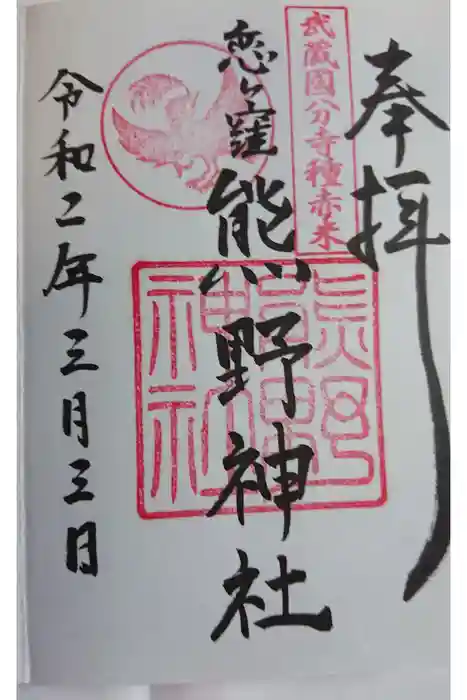 奉拝
武蔵国分寺種赤米
恋ヶ窪
熊野神社
熊野
神社
令和二年三月三日